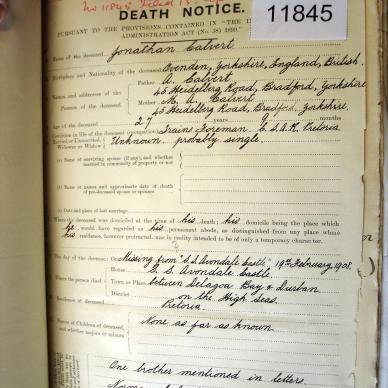 No 11845 Filed
11845
DEATH NOTICE.
PURSUANT TO THE PROVISIONS CONTAINED IN "THE
ADMINISTRATION ACT (No. 38) 1899."
Name of the deceased Jonathan Calvert
Birthplace and Nationality of the deceased Ovenden, Yorkshire, England, British.
Names and addresses of the Parents of the deceased
Father A. Calvert
45 Heidelberg Road, Bradford, Yorkshire
Mother M. A. Calvert
45 Heidelberg Road, Bradford, Yorkshire.
Age of the deceased 27 years 9 months
Condition in life of the deceased (occupation) Trains Foreman C.S.A.R. Pretoria
Married or Unmarried, Widower or Widow Unknown probably single.
(a) Name of surviving spouse (if any), and whether
married in community of property or not
(b) Name or names and approximate date of death
of pre-deceased spouse or spouses
(c) Date and place of last marriage.
Where the deceased was domiciled at the time of his death; his domicile being the place which
he would have regarded as his permanent abode, as distinguished from any place where
his residence, however protracted, was in reality intended to be only of a temporary character.
?
The day of the decease: On Missing from "S.S. Avondale Castle" 19th February 1908.
Where the person died
House S. S. Avondale Castle.
Town or Place between Delagoa Bay & Durban
District on the High Seas.
Residence of deceased Pretoria.
Names of Children of deceased, and whether majors or minors
None as far as known
One brother mentioned in letters.